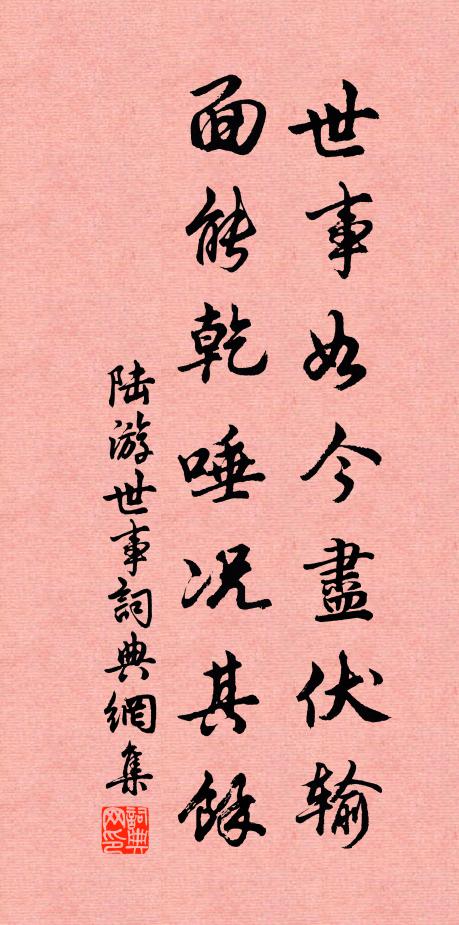 世事如今盡伏输
面能乾唾况其餘
陆游世事詞典網集
詞典网印